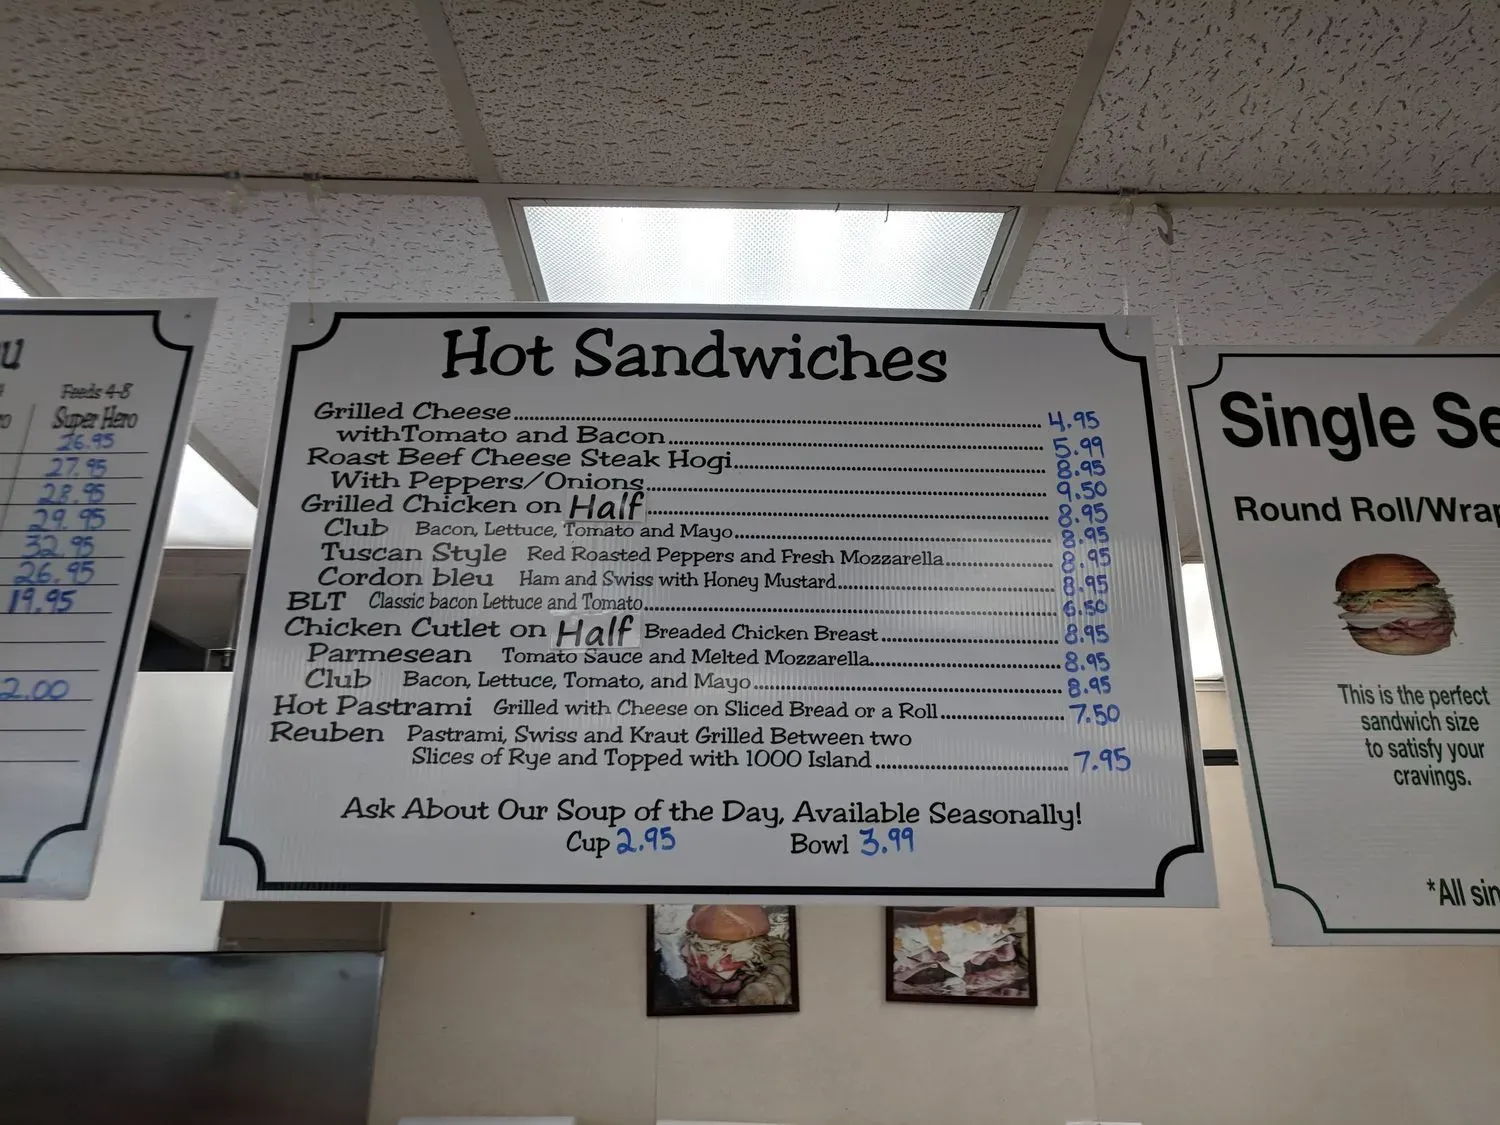 u
Feeds 4-8
Super Hero
26.95
27.95
28.95
29.95
32.95
26.95
19.95
2.00
Hot Sandwiches
Grilled Cheese 4.95
withTomato and Bacon 5.99
Roast Beef Cheese Steak Hogi 8.95
With Peppers/Onions 9.50
Grilled Chicken on Half 8.95
Club Bacon, Lettuce, Tomato and Mayo 8.95
Tuscan Style Red Roasted Peppers and Fresh Mozzarella 8.95
Cordon bleu Ham and Swiss with Honey Mustard 8.95
BLT Classic bacon Lettuce and Tomato 6.50
Chicken Cutlet on Half Breaded Chicken Breast 8.95
Parmesean Tomato Sauce and Melted Mozzarella 8.95
Club Bacon, Lettuce, Tomato, and Mayo 8.95
Hot Pastrami Grilled with Cheese on Sliced Bread or a Roll 7.50
Reuben Pastrami, Swiss and Kraut Grilled Between two
Slices of Rye and Topped with 1000 Island 7.95
Ask About Our Soup of the Day, Available Seasonally!
Cup 2.95 Bowl 3.99
Single Se
Round Roll/Wrap
This is the perfect
sandwich size
to satisfy your
cravings.
*All sin